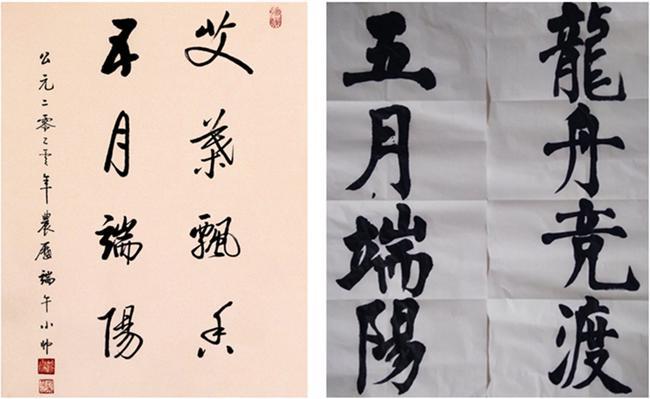 艾葉飄香
五月端陽
公元二零二零年農歷端午小帅
龍舟竞渡
五月端陽